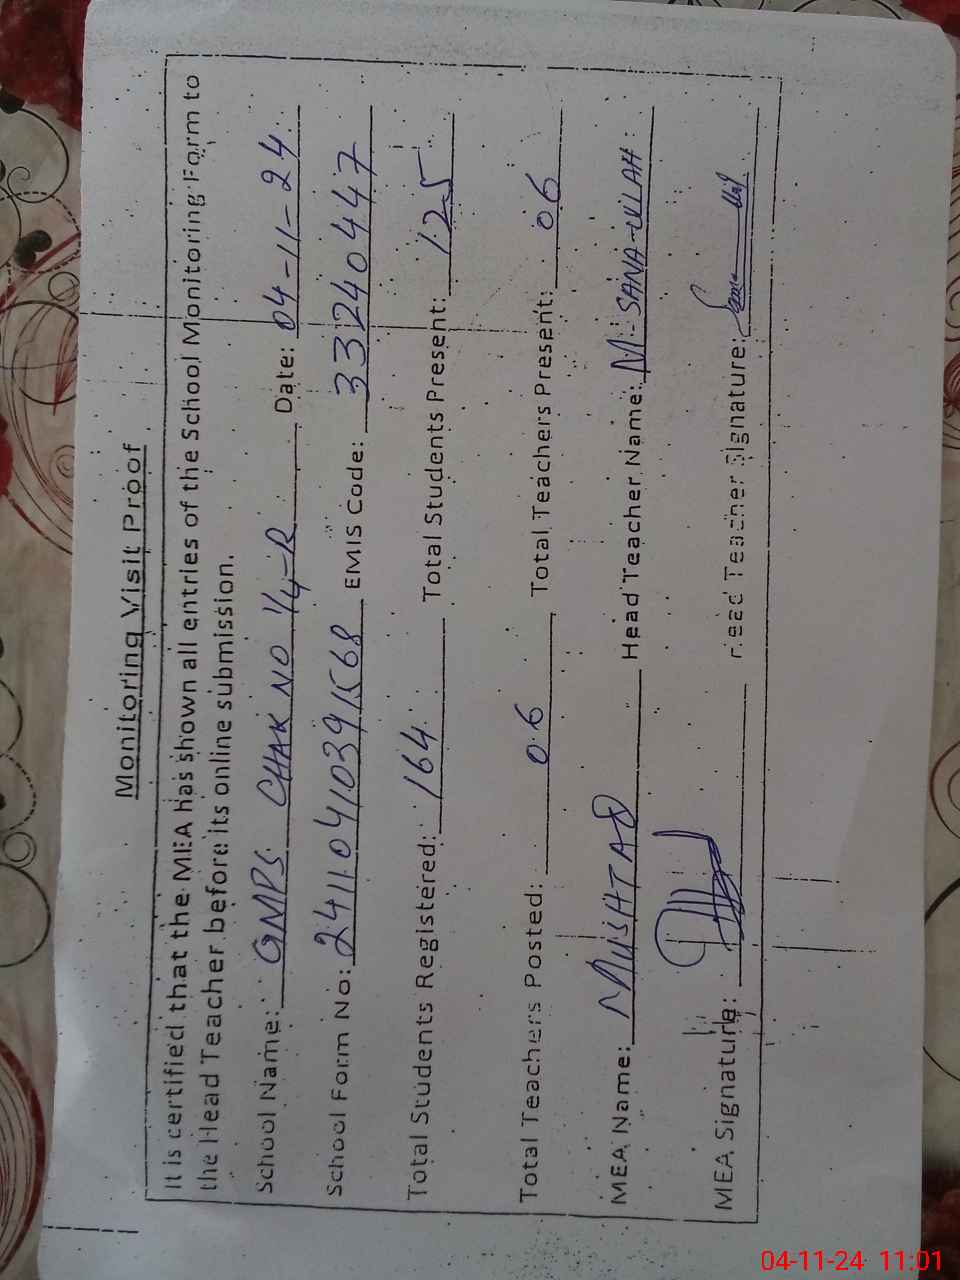 Monitoring Visit Proof
It is certified that the MEA has shown all entries of the School Monitoring Form to
the Head Teacher before its online submission.
School Name: GMPS CHAK NO 1/4-R Date: 04-11-24
School Form No: 24110410391568 EMIS Code: 33240447
Total Students Registered: 164 Total Students Present: 125
Total Teachers Posted: 06 Total Teachers Present: 06
MEA Name: MUSHTAQ Head Teacher Name: M-SANA-ULAH
MEA Signature: Head Teacher Signature:
04-11-24 11:01